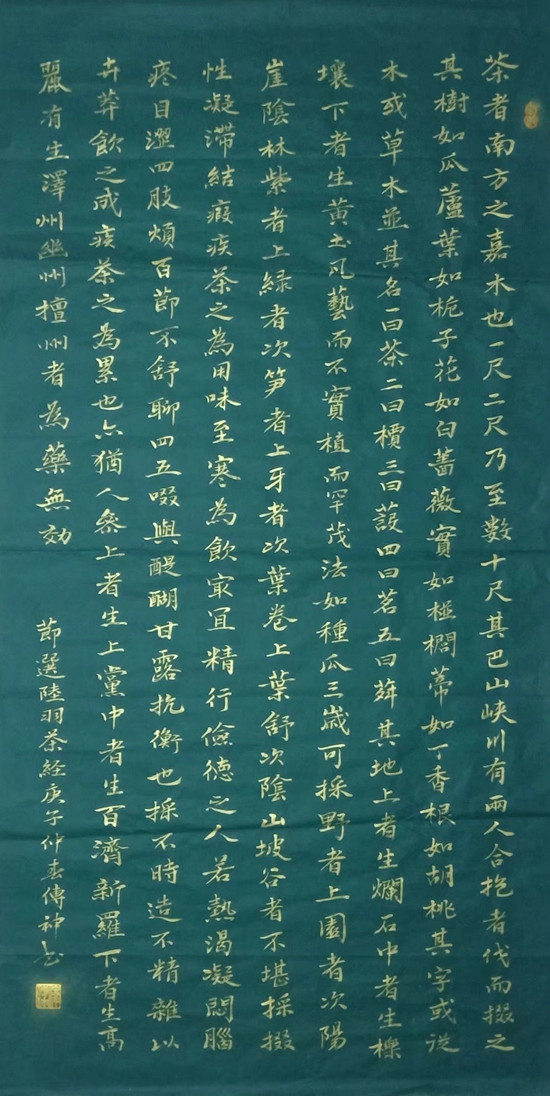 茶者南方之嘉木也一尺二尺乃至數十尺其巴山峽川有兩人合抱者伐而掇之
其樹如瓜蘆葉如梔子花如白薔薇實如栟櫚蒂如丁香根如胡桃其字或從
木或草木並其名一曰茶二曰檟三曰蔎四曰茗五曰荈其地上者生爛石中者生櫟
壤下者生黃土凡藝而不實植而罕茂法如種瓜三歲可採野者上園者次陽
崖陰林紫者上緑者次笋者上牙者次葉卷上葉舒次陰山坡谷者不堪採掇
性凝滯結瘕疾茶之為用味至寒為飲冣宜精行儉德之人若熱渴凝悶腦
疼目澀四肢煩百節不舒聊四五啜與醍醐甘露抗衡也採不時造不精雜以
卉莽飲之成疾茶之為累也亦猶人參上者生上黨中者生百濟新羅下者生高
麗有生澤州幽州檀州者為藥無効
節選陸羽茶経庚子仲春傳神書